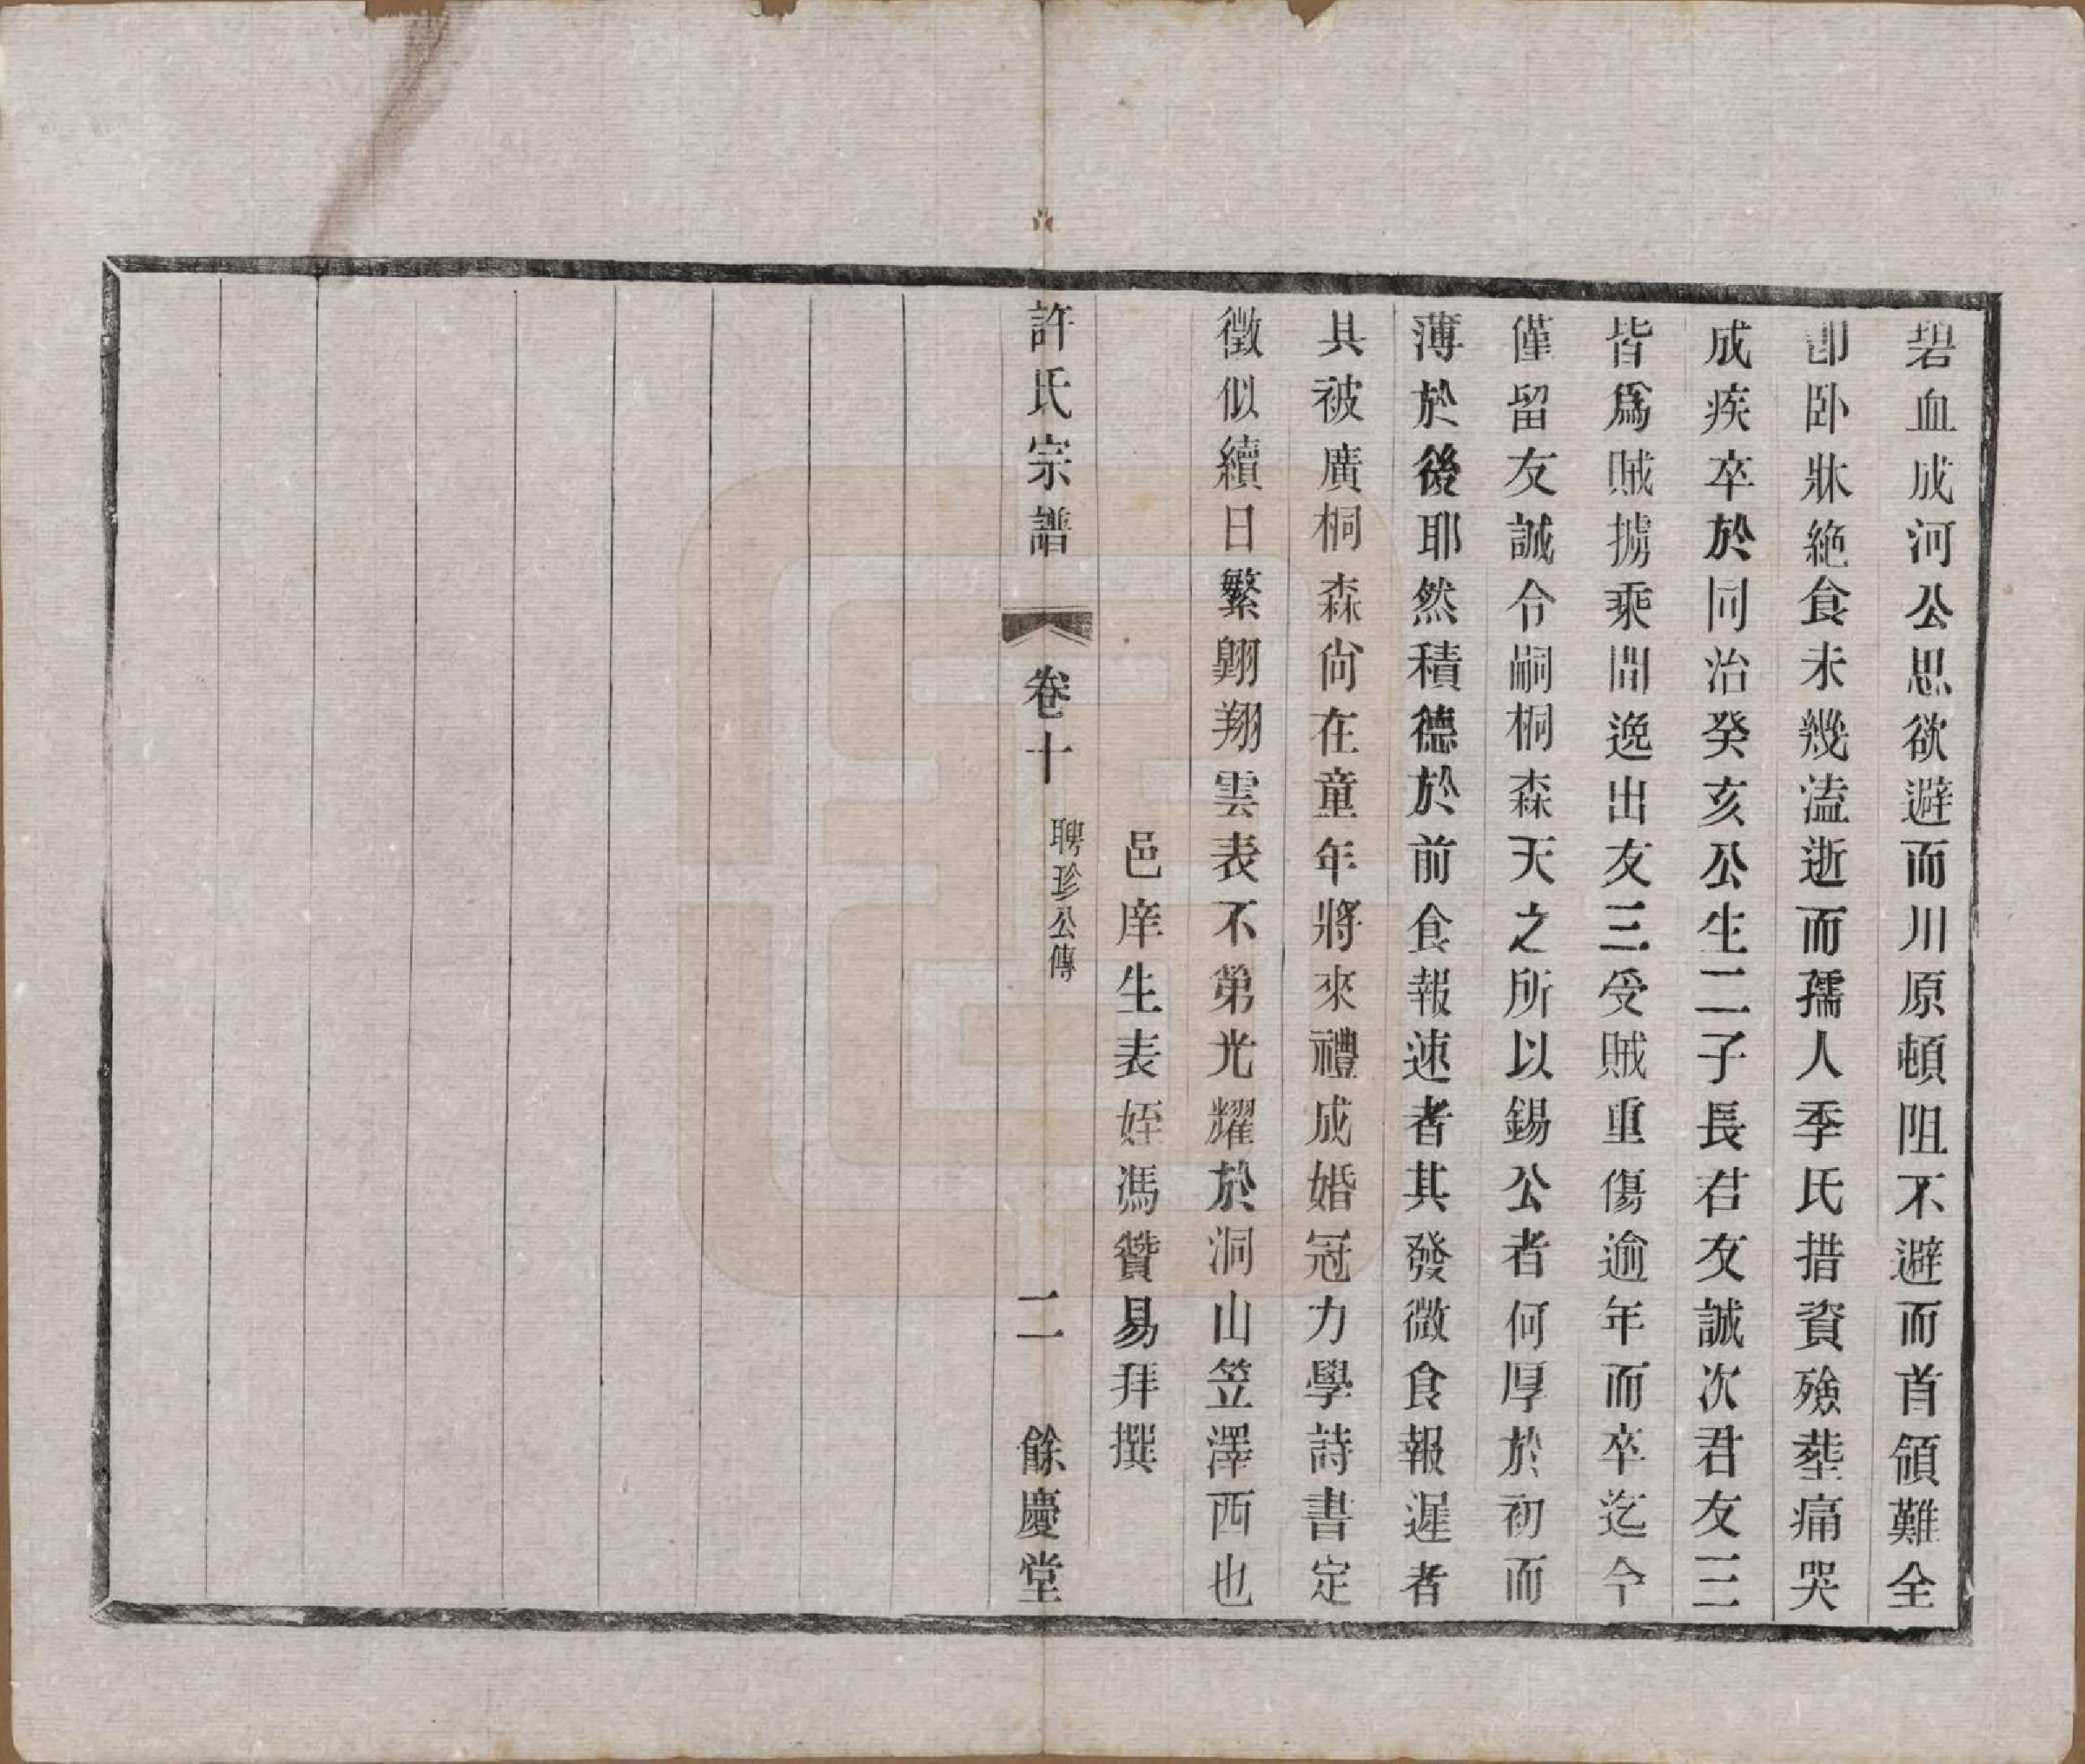 碧血成河公思欲避而川原頓阻不避而首領難全
卽卧牀絶食未幾溘逝而孺人季氏措資殮塟痛哭
成疾卒於同治癸亥公生二子長君友誠次君友三
皆爲賊擄乘間逸出友三受賊重傷逾年而卒迄今
僅留友誠令嗣桐森天之所以錫公者何厚於初而
薄於後耶然積德於前食報速者其發微食報遲者
其被廣桐森尙在童年將來禮成婚冠力學詩書定
徵似續日繁翺翔雲表不第光耀於洞山笠澤西也
邑庠生表姪馮贊易拜撰
許氏宗譜 卷十 聘珍公傳 二 餘慶堂